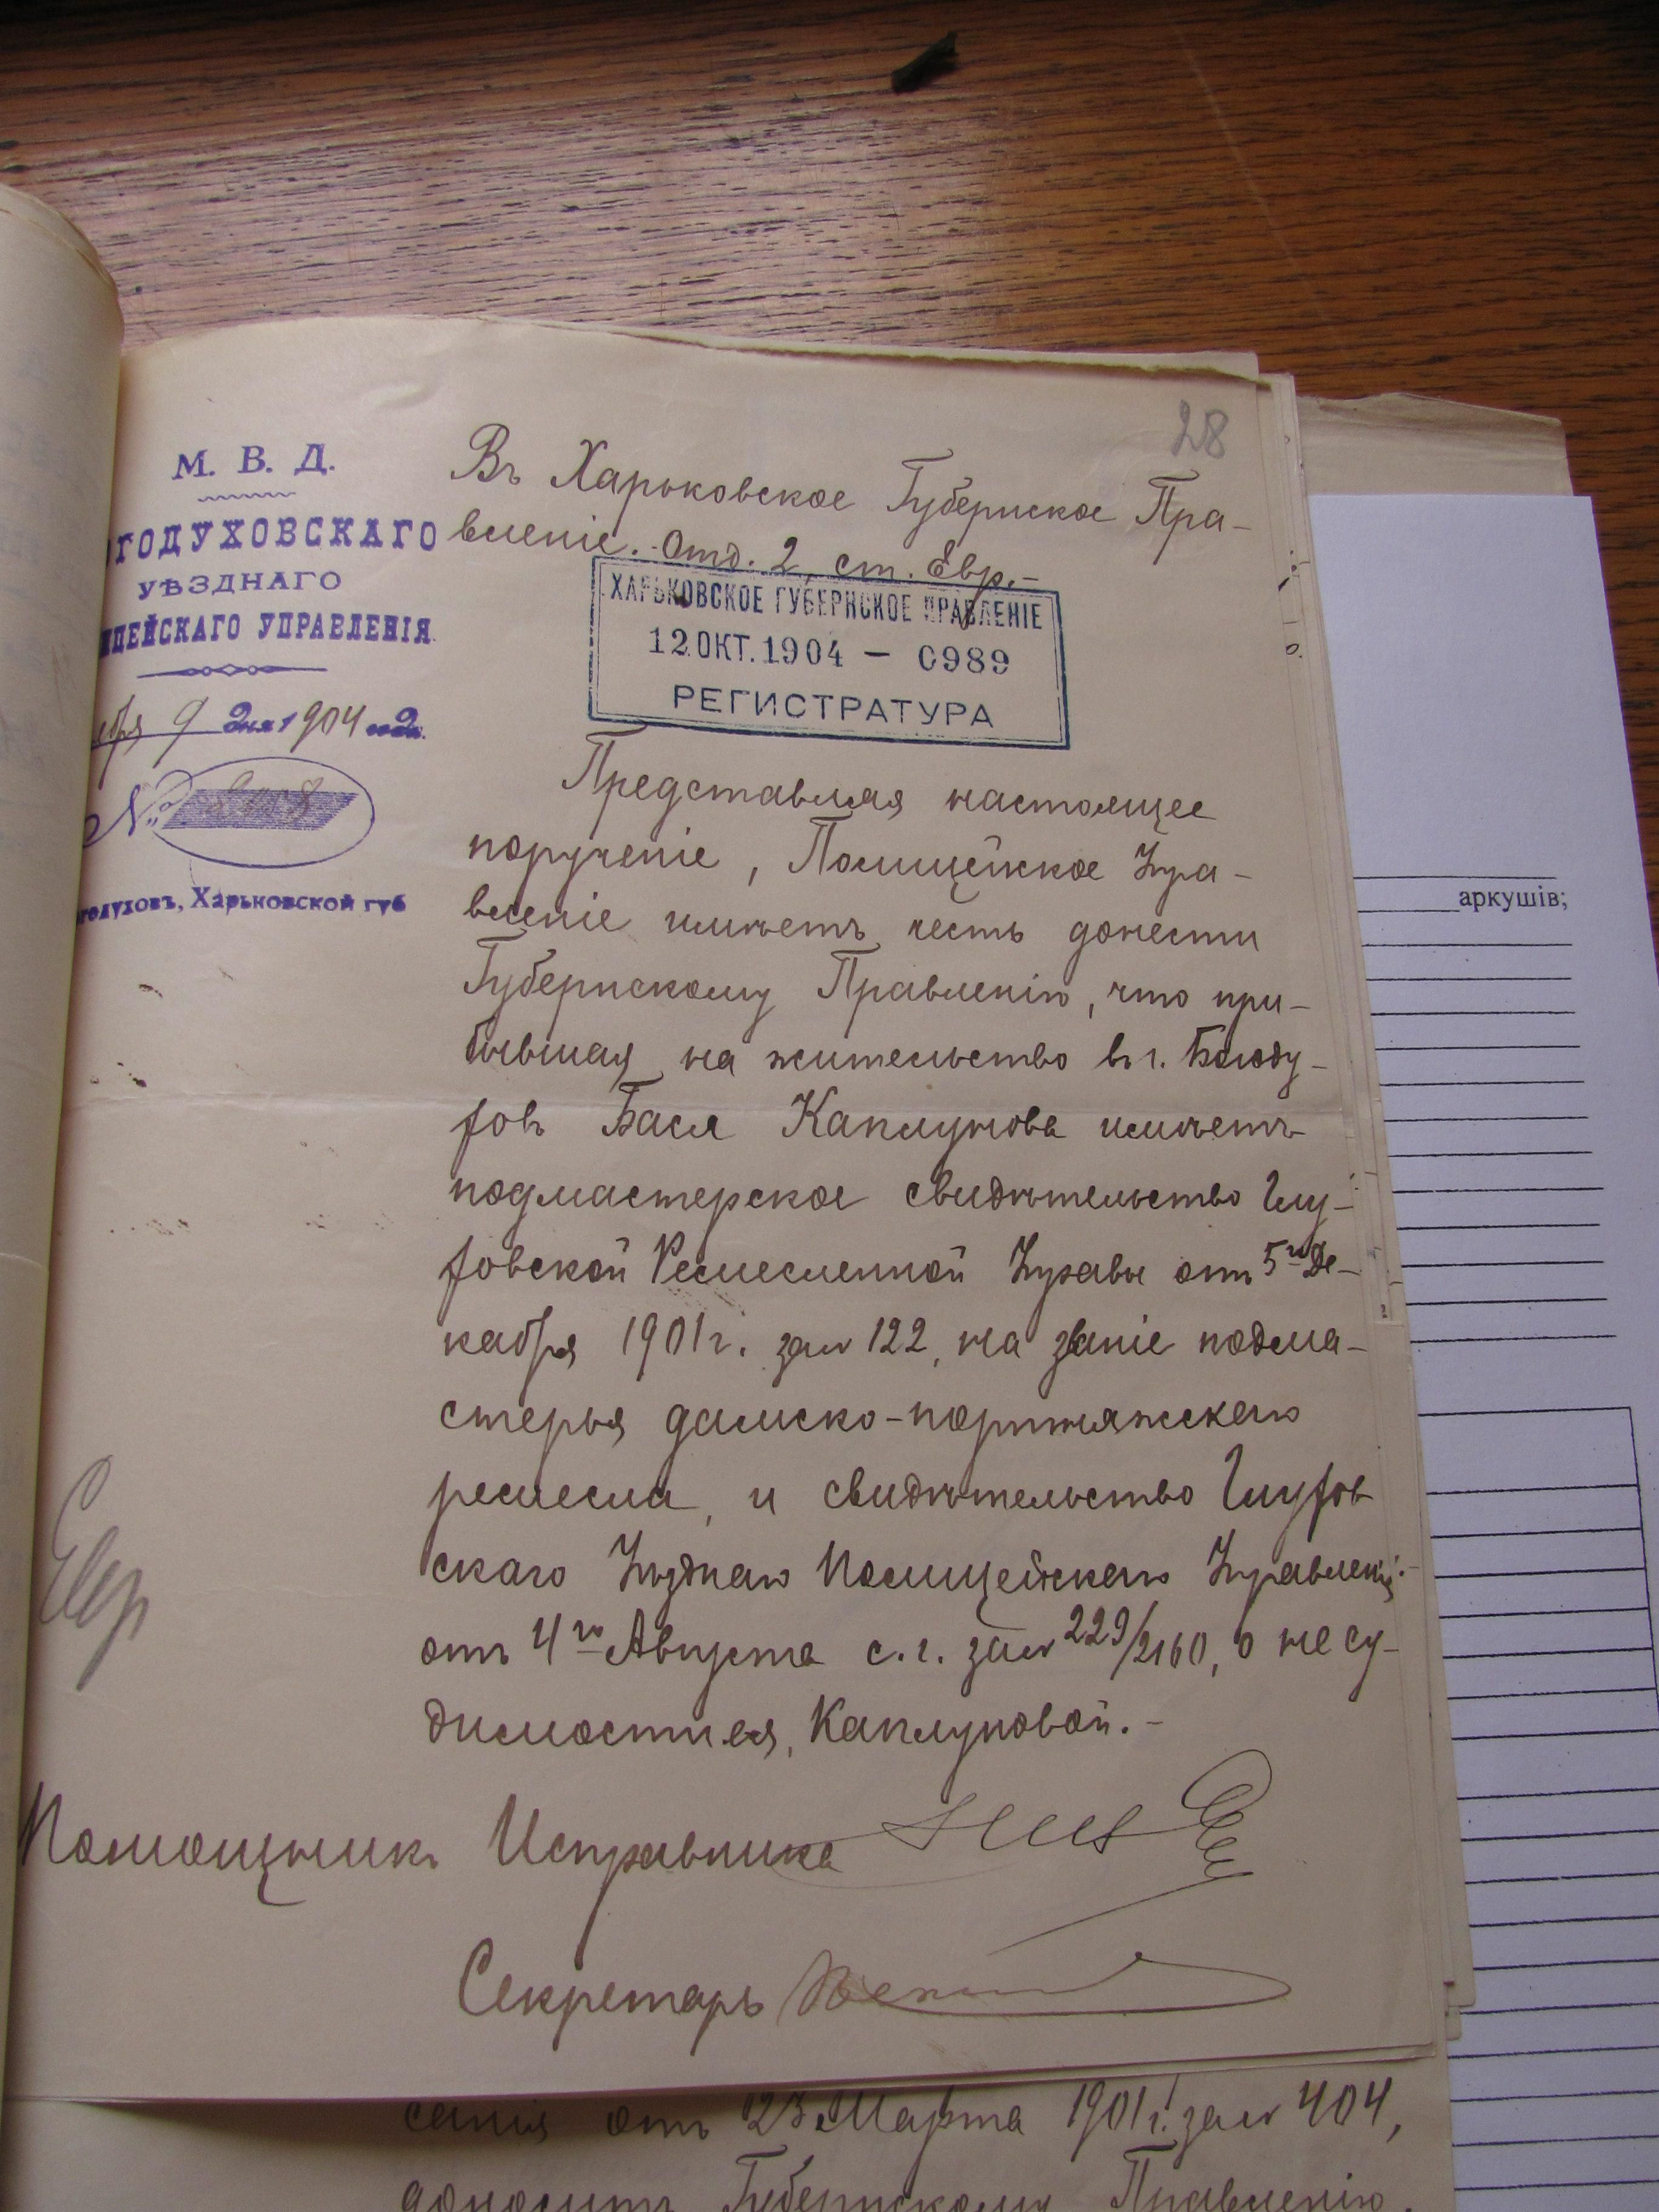 28
М. В. Д.
ГОДУХОВСКАГО
УѢЗДНАГО
ЦЕЙСКАГО УПРАВЛЕНІЯ
бря 9 дня 1904 года.
№
годуховъ, Харьковской губ
Въ Харьковское Губернское Пра-
вленіе. Отд. 2, ст. Евр.-
ХАРЬКОВСКОЕ ГУБЕРНСКОЕ ПРАВЛЕНІЕ
12.ОКТ.1904 — 0989
РЕГИСТРАТУРА
Представляя настоящее
порученіе, Полицейское Упра-
вленіе имѣетъ честь донести
Губернскому Правленію, что при-
бывшая на жительство въ г. Богоду-
ховъ Бася Каплунова имѣетъ
подмастерское свидѣтельство Глу-
ховской Ремесленной Управы отъ 5го Де-
кабря 1901 г. за № 122, на званіе подма-
стерья дамско-портняжскаго
ремесла, и свидѣтельство Глухов
скаго Уѣзднаго Полицейскаго Управленія
отъ 4го Августа с. г. за № 229/2160, о несу-
димости ея, Каплуновой.-
Евр
Помощникъ Исправника
Секретарь
санія отъ 23 Марта 1901 г. за № 404,
доноситъ Губернскому Правленію,
аркушів;